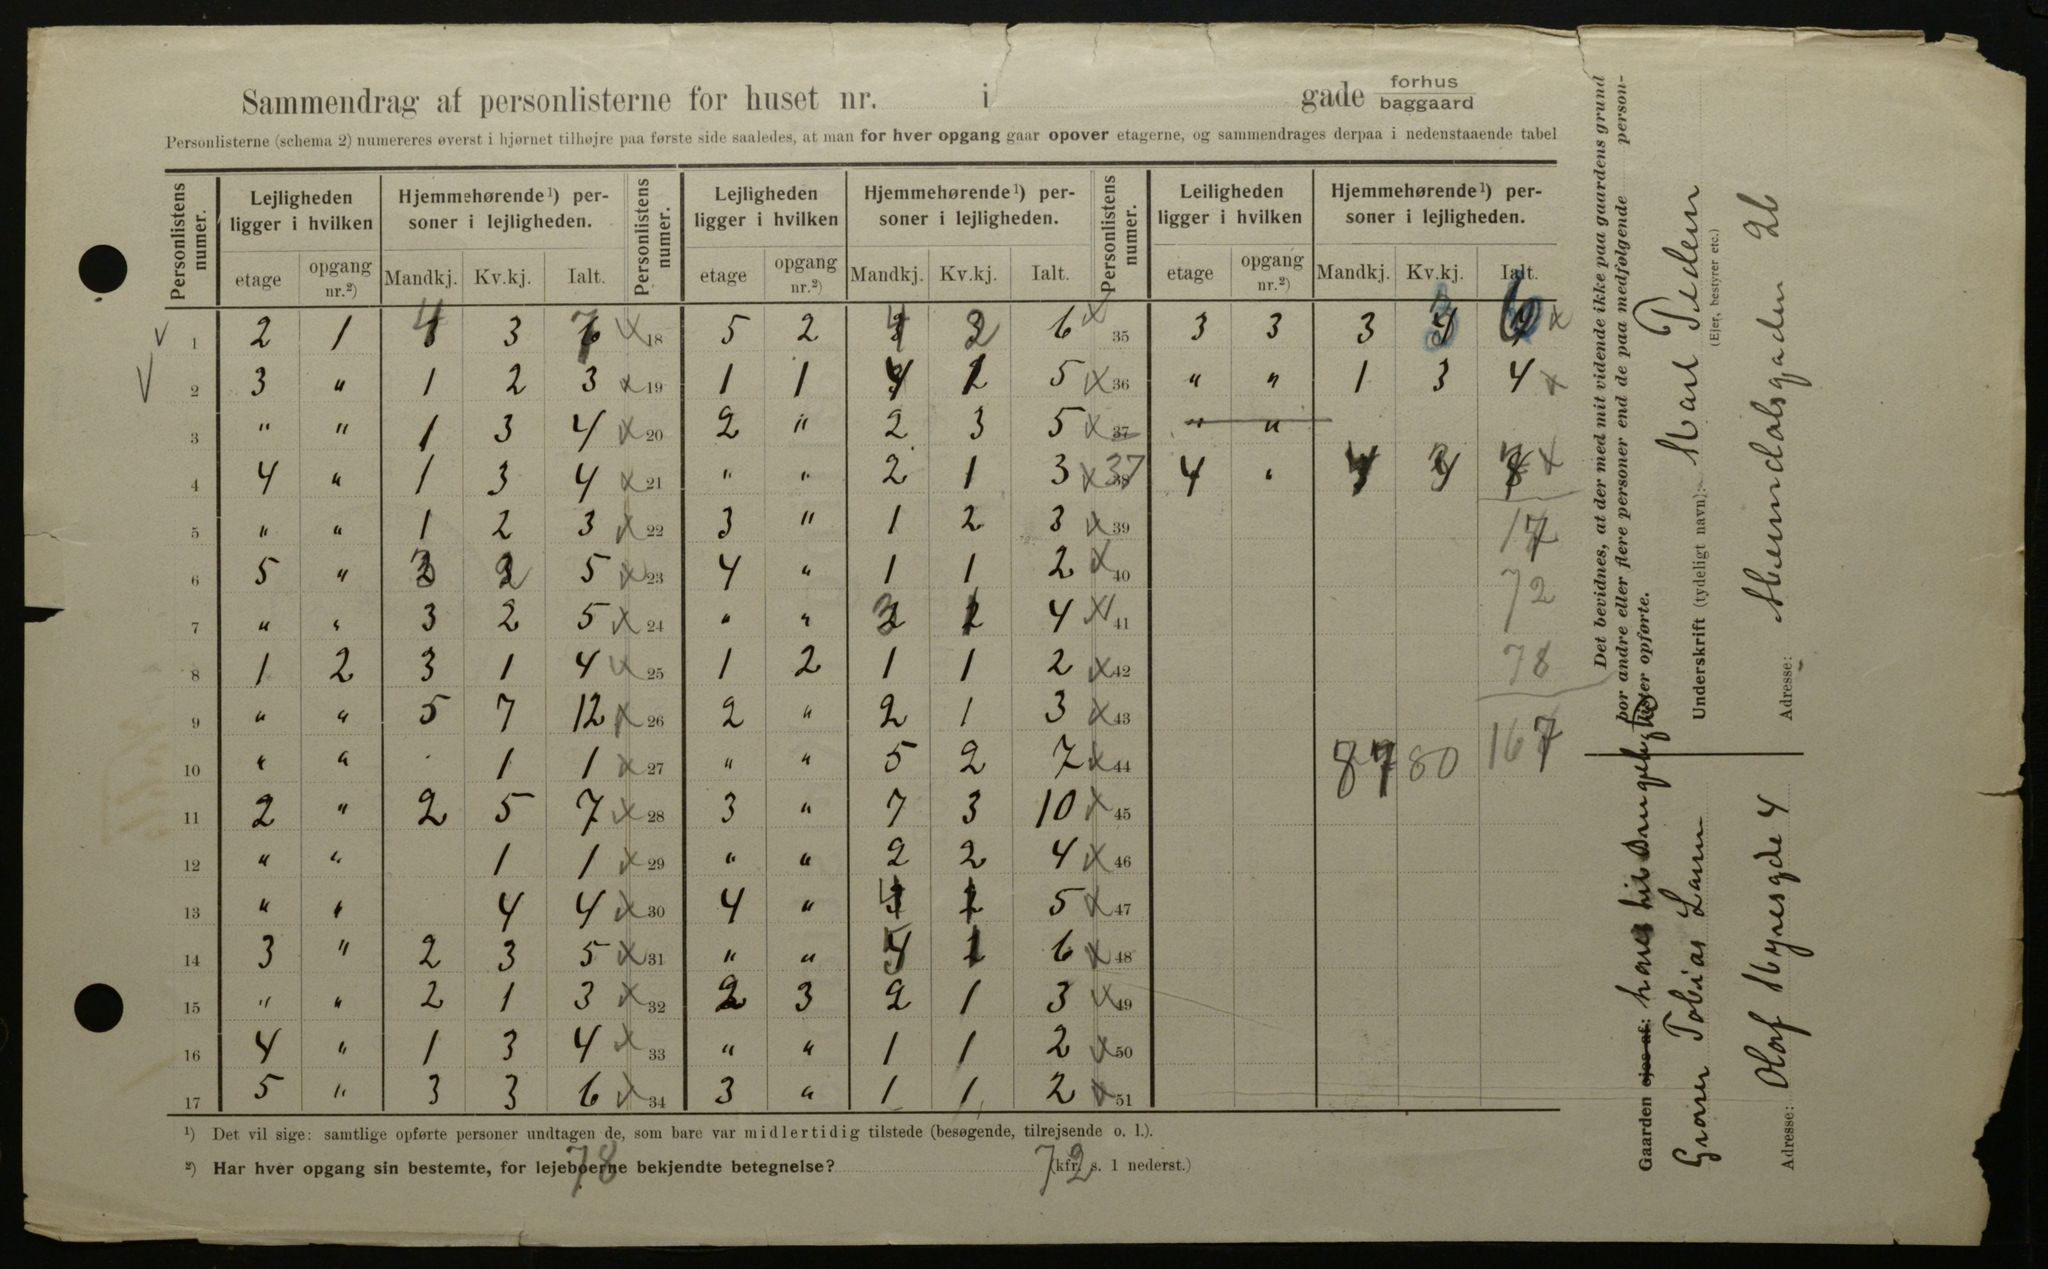 Sammendrag af personlisterne for huset nr. i gade forhus
baggaard
Personlisterne (schema 2) numereres øverst i hjørnet tilhøjre paa første side saaledes, at man for hver opgang gaar opover etagerne, og sammendrages derpaa i nedenstaaende tabel
Personlistens numer. Lejligheden ligger i hvilken Hjemmehørende¹) personer i lejligheden. Personlistens numer. Lejligheden ligger i hvilken Hjemmehørende¹) personer i lejligheden. Personlistens numer. Leiligheden ligger i hvilken Hjemmehørende¹) personer i lejligheden.
etage opgang nr.²) Mandkj. Kv.kj. Ialt. etage opgang nr.²) Mandkj. Kv.kj. Ialt. etage opgang nr.²) Mandkj. Kv.kj. Ialt.
1 2 1 4 3 7 x 18 5 2 4 2 6 x 35 3 3 3 3 6 x
2 3 " 1 2 3 x 19 1 1 4 1 5 x 36 " " 1 3 4 x
3 " " 1 3 4 x 20 2 " 2 3 5 x 37 " "
4 4 " 1 3 4 x 21 " " 2 1 3 x 37 4 " 4 3 7 x
5 " " 1 2 3 x 22 3 " 1 2 3 x 39 17
6 5 " 3 2 5 x 23 4 " 1 1 2 x 40 72
7 " " 3 2 5 x 24 " " 3 1 4 x 41
8 1 2 3 1 4 x 25 1 2 1 1 2 x 42 78
9 " " 5 7 12 x 26 2 " 2 1 3 x 43
10 " " 1 1 x 27 " " 5 2 7 x 44 87 80 167
11 2 " 2 5 7 x 28 3 " 7 3 10 x 45
12 " " 1 1 x 29 " " 2 2 4 x 46
13 " " 4 4 x 30 4 " 4 1 5 x 47
14 3 " 2 3 5 x 31 " " 5 1 6 x 48
15 " " 2 1 3 x 32 2 3 2 1 3 x 49
16 4 " 1 3 4 x 33 " " 1 1 2 x 50
17 5 " 3 3 6 x 34 3 " 1 1 2 x 51
¹) Det vil sige: samtlige opførte personer undtagen de, som bare var midlertidig tilstede (besøgende, tilrejsende o. l.).
²) Har hver opgang sin bestemte, for lejeboerne bekjendte betegnelse? (kfr. s. 1 nederst.)
78 72
Det bevidnes, at der med mit vidende ikke paa gaardens grund
bor andre eller flere personer end de paa medfølgende person-
lister opførte.
Underskrift (tydeligt navn): Karl Pedern
(Ejer, bestyrer etc.)
Adresse: 2b
Gaarden ejes af:
Tobias
Adresse: Olaf Kyresgde 4